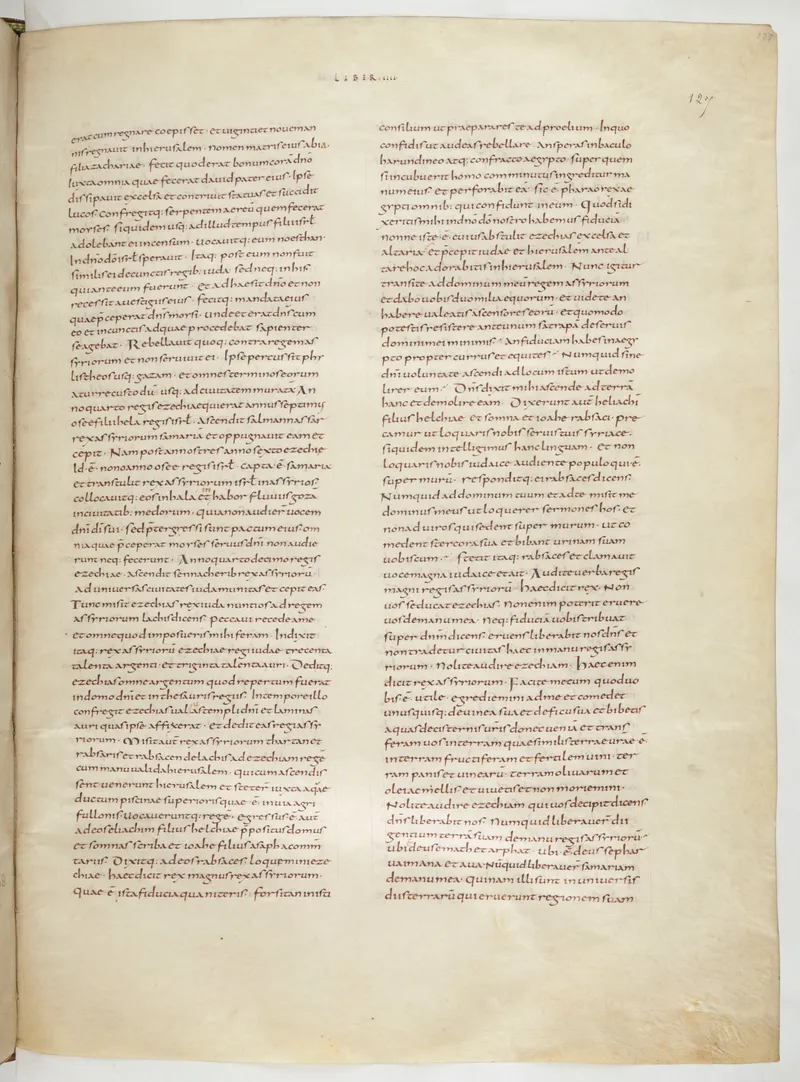 LIBER IIII
127
erat cum regnare coepisset · et uiginti et nouem an
nis regnauit in hierusalem · nomen matris eius abia ·
filia zachariae · fecit quod erat bonum corā dn̄o
iuxta omnia quae fecerat dauid pater eius · Ipse
dissipauit excelsa et contriuit statuas et succidit
lucos confregitq; serpentem aereū quem fecerat
morses · siquidem usq; ad illud tempus filii isr̄l
adolebant ei incensum · uocauitq; eum noesthan ·
In dn̄o dō isr̄l sperauit · Itaq; post eum non fuit
similis ei de cunctis regib; iuda · sed neq; in his
qui ante eum fuerunt · Et adhaesit dn̄o et non
recessit a uestigiis eius · fecitq; mandata eius
quae p̄ceperat dn̄s morsi · unde et erat dn̄s cum
eo et in cunctis ad quae procedebat sapienter
se agebat · Rebellauit quoq; contra regem as
syriorum et non seruiuit ei · Ipse percussit phi
listheos usq; gazam · et omnes terminos eorum
a turre custodū usq; ad ciuitatem muratā An
no quarto regis ezechiae qui erat annus septimus
osee filii hela regis isr̄l · Ascendit salmannassar
rex assyriorum samaria et oppugnauit eam et
cepit · Nam post annos tres anno sexto ezechie
Id · ē · nono anno osee regis isr̄l · capta · ē · samaria
et transtulit rex assyriorum isr̄l in assyrios
collocauitq; eos in hala et in habor fluuiis goza
in ciuitatib; medorum · quia non audier̄ uocem
dn̄i dī sui · sed p̄tergressi sunt pactum eius om
niaque p̄ceperat morses seruus dn̄i non audie
runt neq; fecerunt · Anno quarto decimo regis
ezechiae · ascendit sennacherib rex assyriorū
ad uniuersas ciuitates iuda munitas et cepit eas
Tunc misit ezechias rex iuda nuntios ad regem
assyriorum lachis dicens peccaui recede a me
et omne quod imposueris mihi feram · Indixit
itaq; rex assyriorū ezechiae regi iudae trecenta
talenta argenti et triginta talenta auri · Deditq;
ezechias omne argentum quod repertum fuerat
in domo dn̄i et in thesauris regiis · In tempore illo
confregit ezechias ualuas templi dn̄i et laminas
auri quas ipse affixerat · et dedit eas regi assy
riorum · Misit aut̄ rex assyriorum thartan et
rabsaris et rabsacen de lachis ad ezechiam regē
cum manu ualida hierusalem · qui cum ascendis
sent uenerunt hierusalem et steter̄ iuxta aquae
ductum piscinae superioris quae · ē · in uia agri
fullonis uocaueruntq; regē · egressus · ē · aut̄
ad eos eliachim filius helchiae p̄positus domus
et somnas scriba et ioahe filius asaph a comm
tariis · Dixitq; ad eos rabsaces loquemini eze
chiae · haec dicit rex magnus rex assyriorum ·
quae · ē · ista fiducia qua niteris · forsitan inisti
consilium ut praepares te ad proelium · In quo
confidis ut audeas rebellare · An speras in baculo
harundineo atq; confracto aegypto · super quem
si incubuerit homo comminutus ingreditur ma
num eius · et perforabit eā · sic · ē · pharao rex ae
gypti omnib; qui confidunt in eum · Quod si di
xeritis mihi in dn̄o dō nostro habemus fiduciā
nonne iste · ē · cuius abstulit ezechias excelsa et
altaria · et p̄cepit iudae et hierusalem ante al
tare hoc adorabitis in hierusalem · Nunc igitur
transite ad dominum meū regem assyriorum
et dabo uobis duo milia equorum · et uidete an
habere ualeatis ascensores eorū · et quomodo
potestis resistere ante unum satrapā de seruis
domini mei minimis · An fiduciam habes in aegy
pto propter currus et equites · Numquid sine
dn̄i uoluntate ascendi ad locum istum ut demo
lirer eum · Dn̄s dixit mihi ascende ad terrā
hanc et demolire eam · Dixerunt aut̄ heliachī
filius helchiae · et somna et ioahe rabsaci · pre
camur ut loquaris nobis seruis tuis syriace ·
siquidem intelligimus hanc linguam · Et non
loquaris nobis iudaice audiente populo qui · ē ·
super murū · responditq; ei rabsaces dicens
Numquid ad dominum tuum et ad te misit me
dominus meus ut loquerer sermones hos · et
non ad uiros qui sedent super murum · ut co
medent stercora sua et bibant urinam suam
uobiscum · stetit itaq; rabsaces et clamauit
uoce magna iudaice et ait · Audite uerba regis
magni regis assyriorū · haec dicit rex · Non
uos seducat ezechias · Non enim poterit eruere
uos de manu mea · Neq; fiduciā uobis tribuat
super dn̄m dicens · eruens liberabit nos dn̄s et
non tradetur ciuitas haec in manu regis assy
riorum · Nolite audire ezechiam · Haec enim
dicit rex assyriorum · Facite mecum quod uo
bis · ē · utile · egredimini ad me et comedet
unusquisq; de uinea sua et de ficu sua et bibetis
aquas de cisternis uris donec ueniā et trans
feram uos in terram quae similis terrae urae · ē ·
in terram fructiferam et fertilem uini · ter
ram panis et uinearū · terram oliuarum et
olei ac mellis et uiuetis et non moriemini ·
Nolite audire ezechiam qui uos decipit dicens
dn̄s liberabit nos · Numquid liberauer̄ dii
gentium terrā suam de manu regis assyriorū
ubi deus emath et arphat · ubi · ē · deus sephar
uaim ana et aua · Nūquid liberauer̄ samariam
de manu mea · Quinam illi sunt in uniuersis
diis terrarū qui eruerunt regionem suam